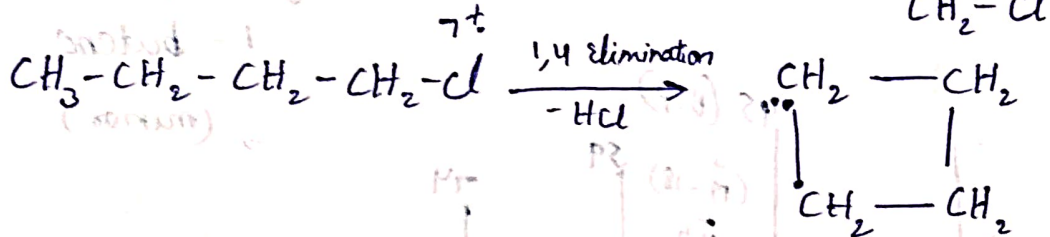 CH₂-Cl
⌐+
CH₃-CH₂-CH₂-CH₂-Cl 1,4 Elimination CH₂—CH₂
-HCl
CH₂—CH₂